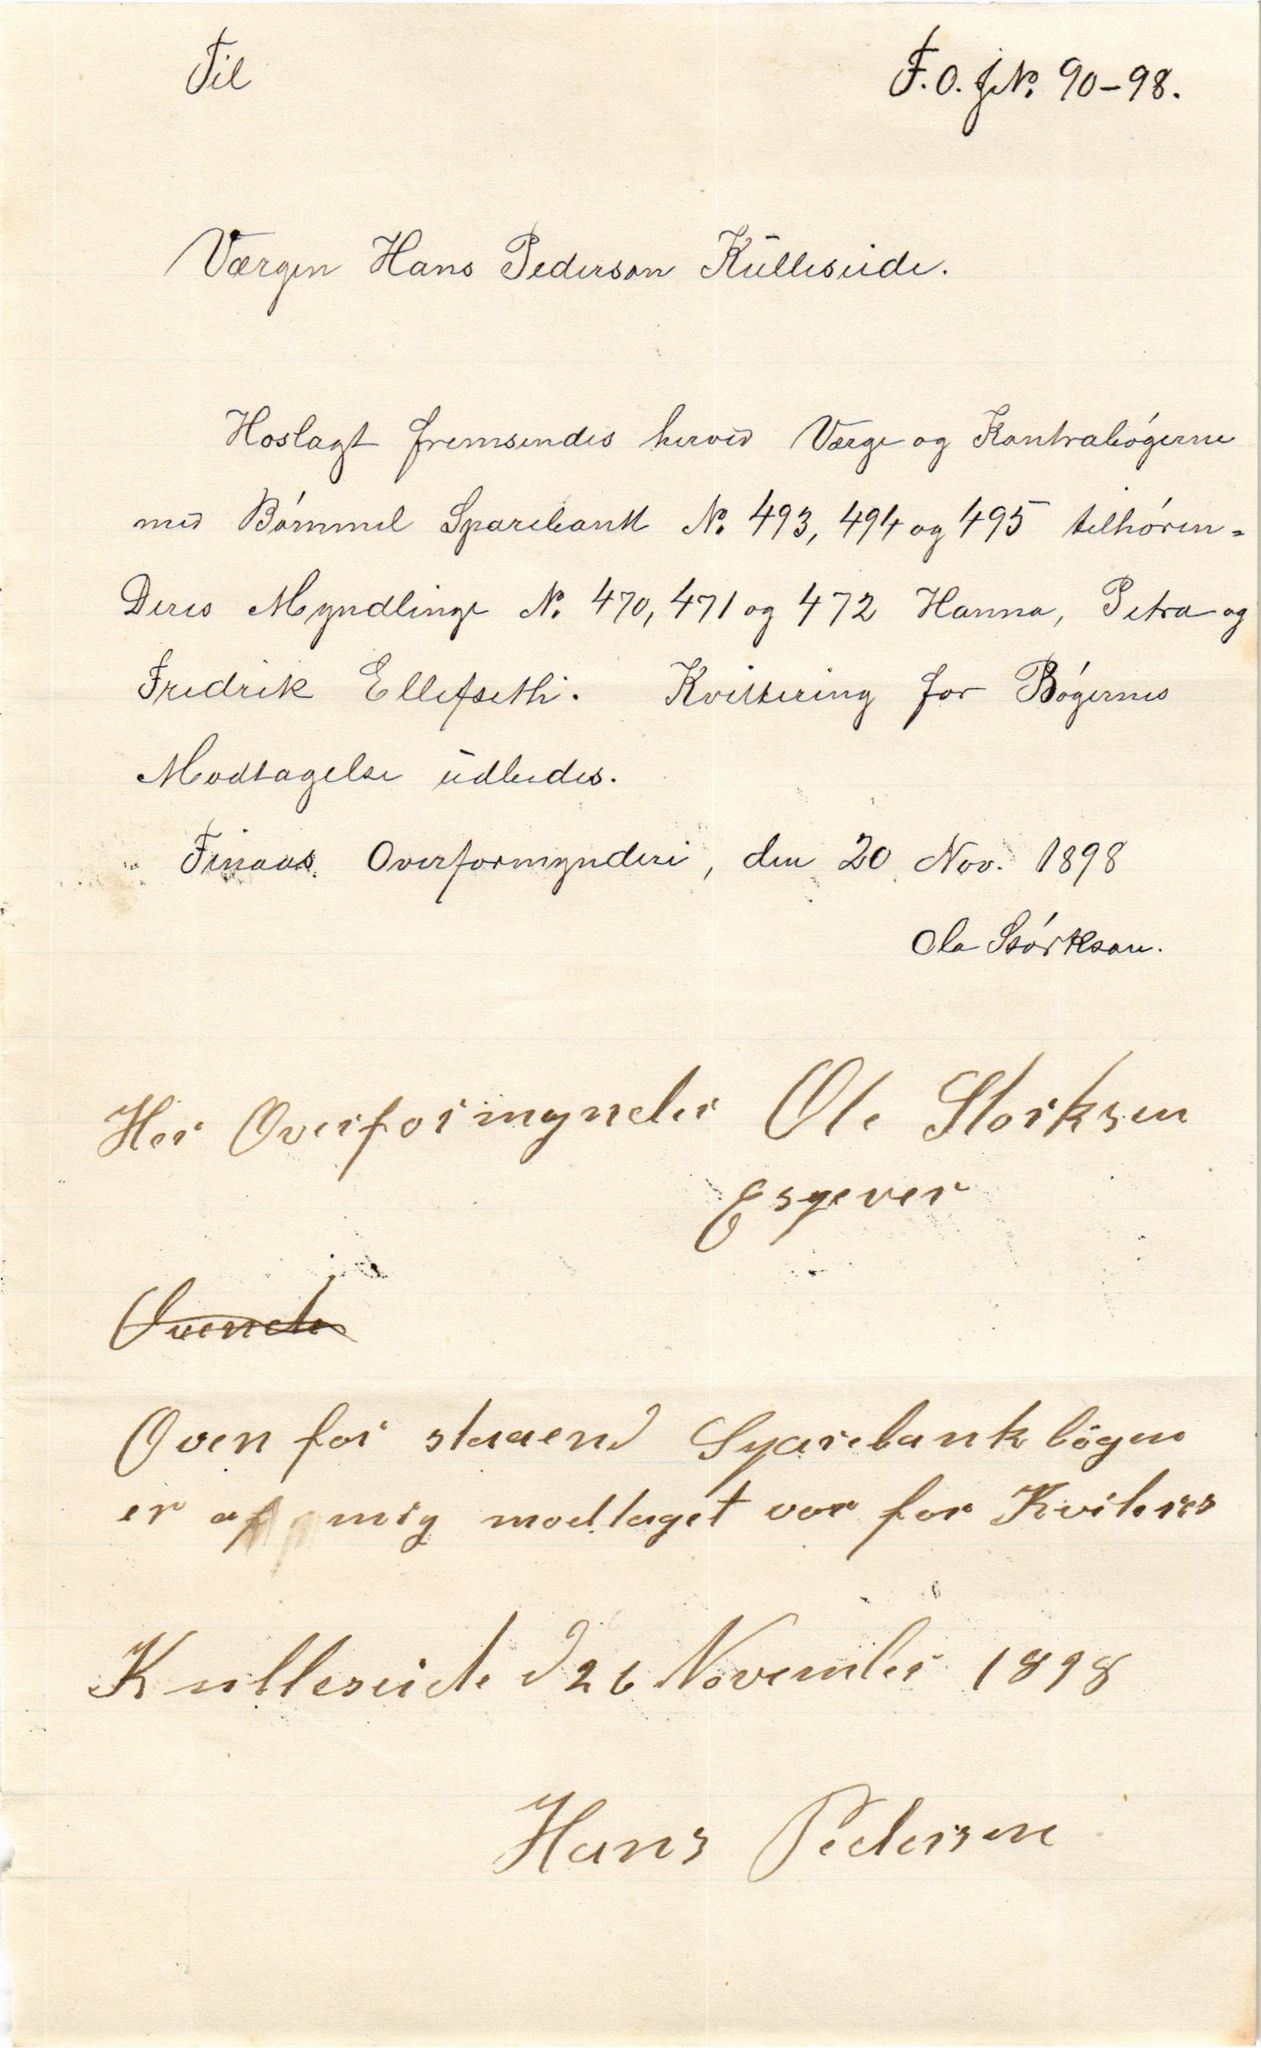 Til
F.O. J.№ 90-98.
Værgen Hans Pederson Külleseide.
Hoslagt fremsendes herved Værge og Kontrabógerne
med Bómmel Sparebank №. 493, 494 og 495 tilhóren=
Deres Myndlinge №. 470, 471 og 472 Hanna, Petra og
Fredrik Ellefseth. Kvittering for Bógernes
Modtagelse üdbedes.
Finaas Overformynderi, den 20 Nov. 1898
Ole Stórkson.
Her Overformynder Ole Storksen
Esperer
Ovende
Oven for staaend Sparebank bögen
er af mig modtaget vor for Kviteres
Kulleseide d 26 November 1898
Hans Pedersen